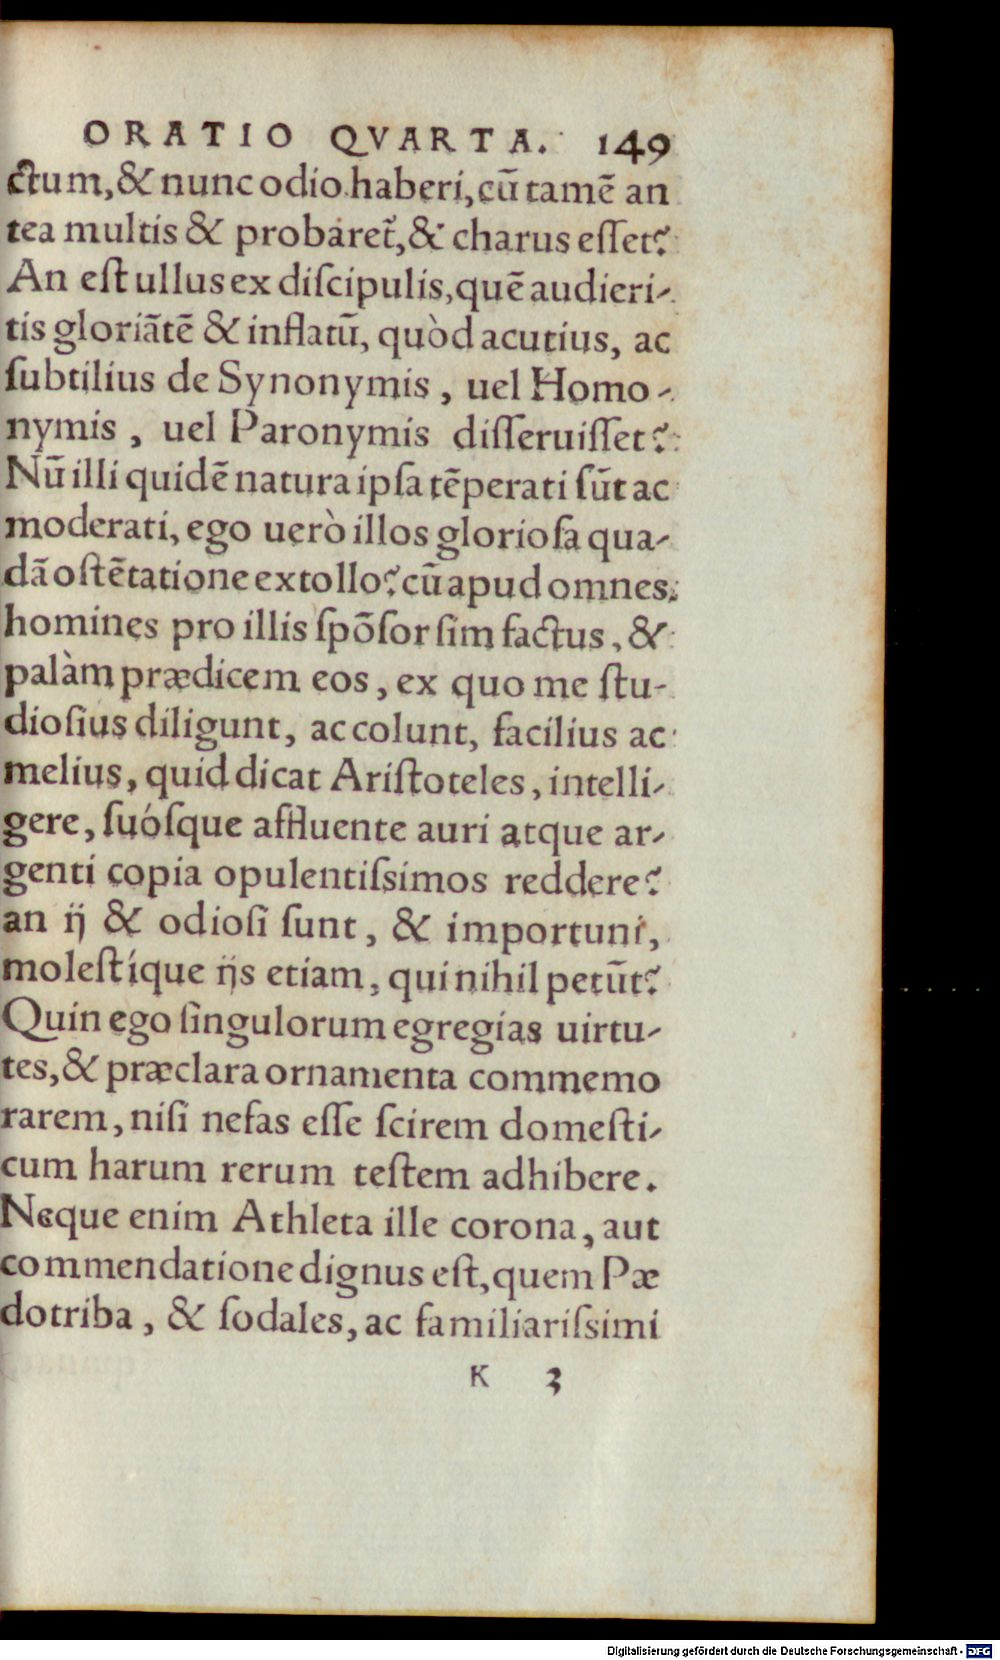 ORATIO QVARTA. 149
ctum, & nunc odio haberi, cū tamē an
tea multis & probaret᷑, & charus eſſet?
An eſt ullus ex diſcipulis, quē audieri-
tis gloriātē & inflatū, quòd acutius, ac
ſubtilius de Synonymis, uel Homo-
nymis, uel Paronymis diſſeruiſſet?
Nū illi quidē natura ipſa tēperati sūt ac
moderati, ego uerò illos glorioſa qua-
dā oſtētatione extollo? cū apud omnes
homines pro illis ſpōſor ſim factus, &
palàm prædicem eos, ex quo me ſtu-
dioſius diligunt, ac colunt, facilius ac
melius, quid dicat Ariſtoteles, intelli-
gere, ſuóſque affluente auri atque ar-
genti copia opulentiſsimos reddere?
an ij & odioſi ſunt, & importuni,
moleſtíque ijs etiam, qui nihil petūt?
Quin ego ſingulorum egregias uirtu-
tes, & præclara ornamenta commemo
rarem, niſi nefas eſſe ſcirem domeſti-
cum harum rerum teſtem adhibere.
Neque enim Athleta ille corona, aut
commendatione dignus eſt, quem Pæ
dotriba, & ſodales, ac familiariſsimi
K 3
Digitalisierung gefördert durch die Deutsche Forschungsgemeinschaft - DFG